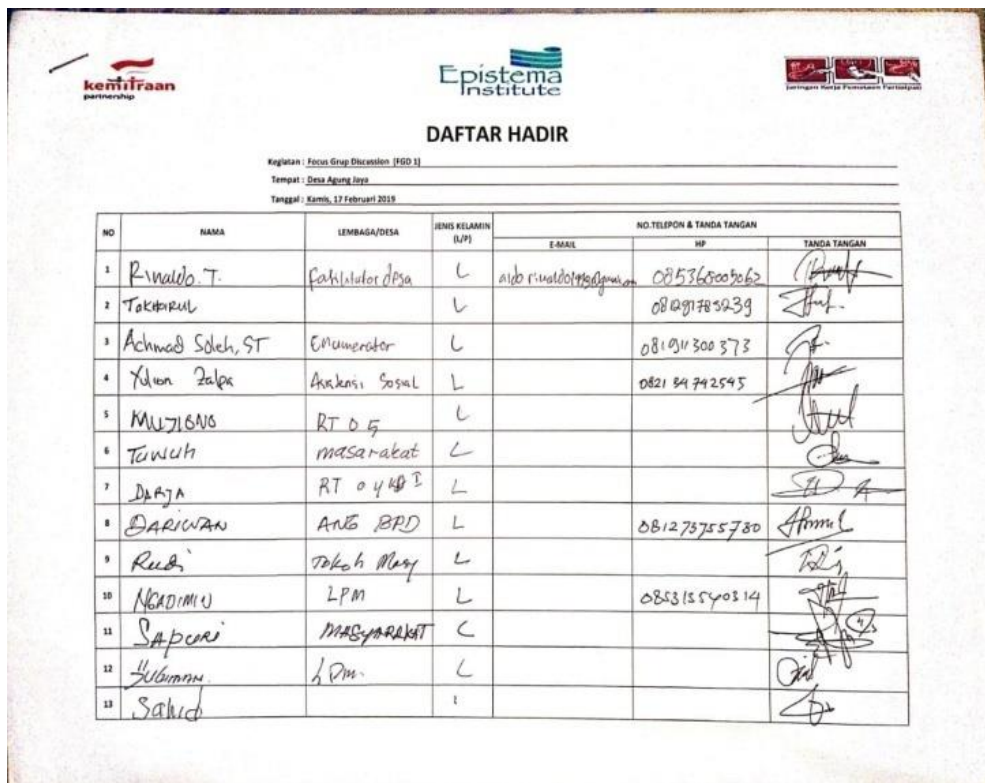 kemitraan
partnership
Epistema
Institute
Jaringan Kerja Pemetaan Partisipatif
DAFTAR HADIR
Kegiatan : Focus Grup Discussion (FGD 1)
Tempat : Desa Agung Jaya
Tanggal : Kamis, 17 Februari 2019
NO NAMA LEMBAGA/DESA JENIS KELAMIN (L/P) NO.TELEPON & TANDA TANGAN
E-MAIL HP TANDA TANGAN
1 Rinaldo. T. Fasilitator desa L 085368005062
2 TOKHAIRUL L 081291785239
3 Achmad Soleh, ST Enumerator L 081911300373
4 Yulion Zalpa Asistensi Sosial L 082134742545
5 MUJIONO RT 05 L
6 Tuwuh masarakat L
7 DARJA RT 04 L
8 DARIWAN ANG BPD L 081273755730
9 Rudi Tokoh Masy L
10 NGADIMIN LPM L 085313540314
11 SAPURI MASYARAKAT L
12 SUGIMAN. LPM. L
13 Sahid